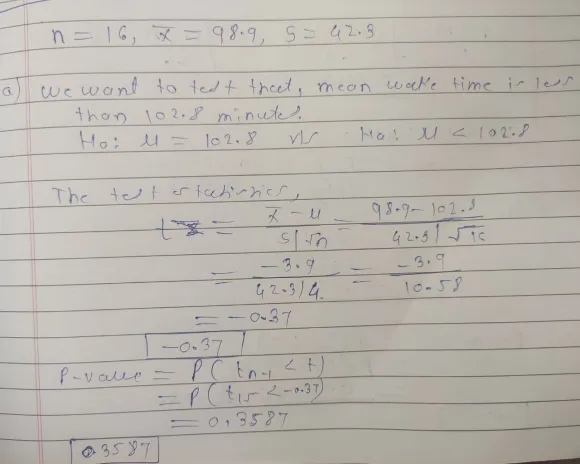 n = 16, x̄ = 98.9, s = 42.3
a) we want to test that, mean wake time is less
than 102.8 minutes.
H₀: μ = 102.8 v/s Ha: μ < 102.8
The test statistics,
t = x̄ - μ / s/√n = 98.9 - 102.8 / 42.3/√16
= -3.9 / 42.3/4 = -3.9 / 10.58
= -0.37
-0.37
P-value = P(tn-1 < t)
= P(t15 < -0.37)
= 0.3587
0.3587